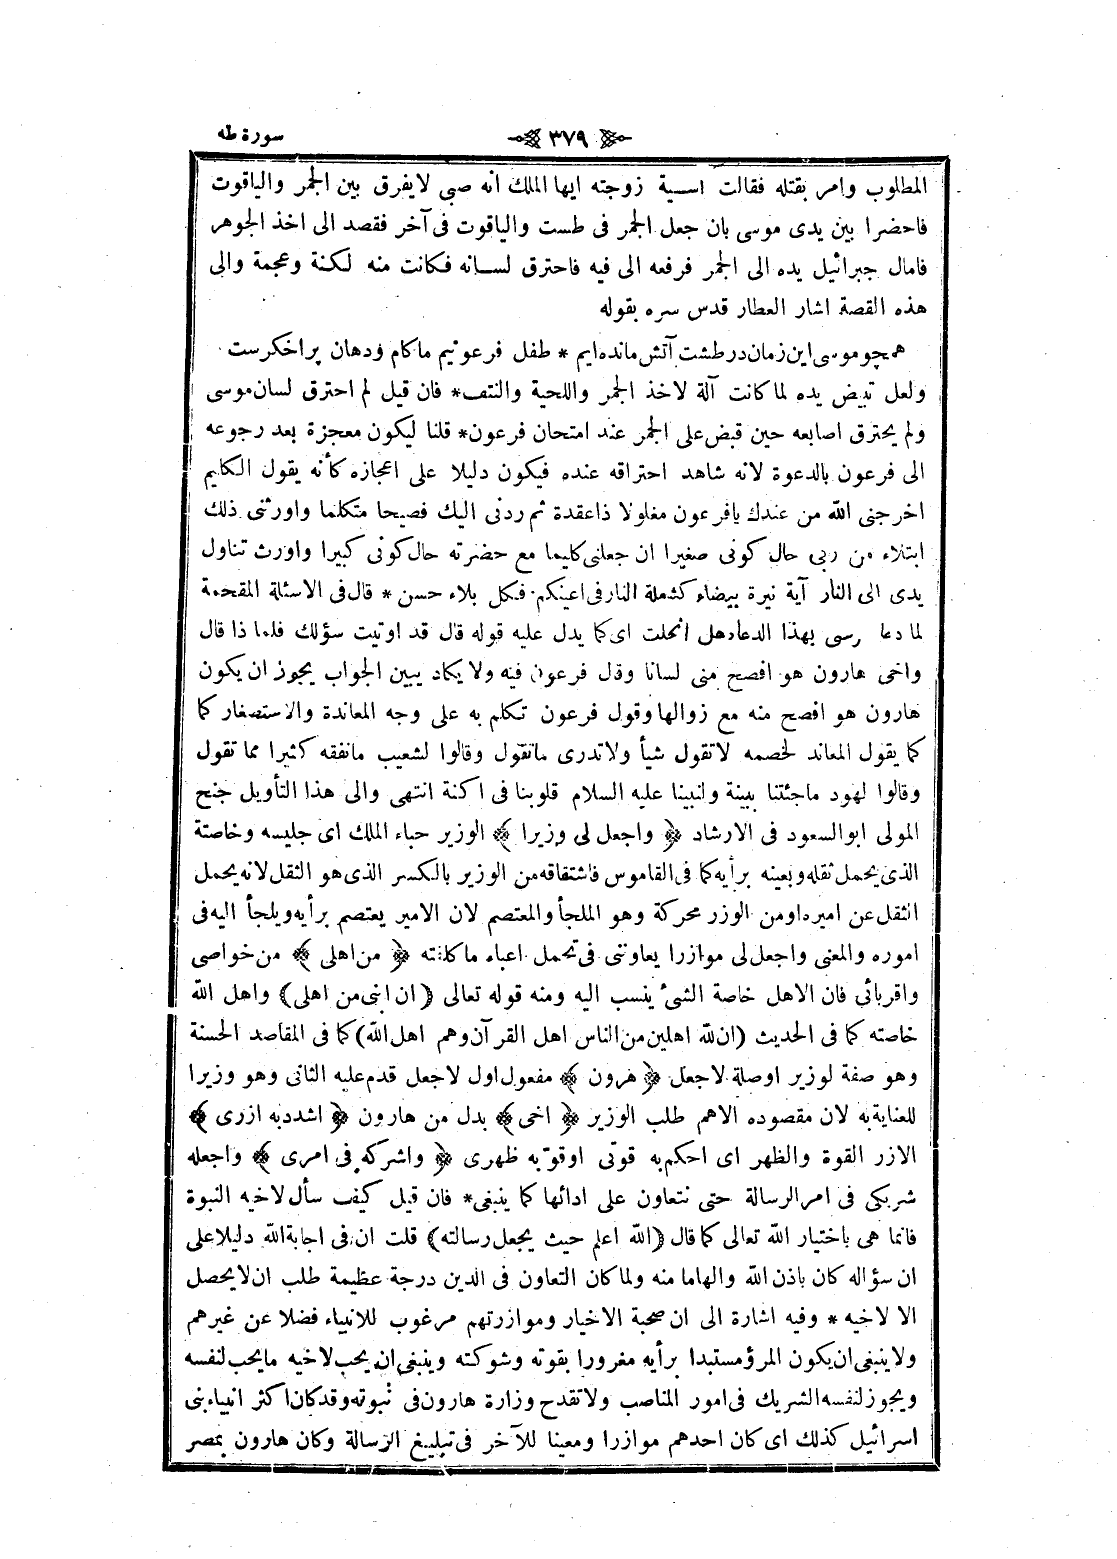 سورة طه
٣٧٩
المطلوب وامر بقتله فقالت اسية زوجته ايها الملك انه صبى لايفرق بين الجمر والياقوت
فاحضرا بين يدى موسى بان جعل الجمر فى طست والياقوت فى آخر فقصد الى اخذ الجوهر
فامال جبرائيل يده الى الجمر فرفعه الى فيه فاحترق لسانه فكانت منه لكنة وعجمة والى
هذه القصة اشار العطار قدس سره بقوله
همچو موسى اين زمان در طشت آتش مانده ايم * طفل فرعونيم ما كام ودهان پر اخكرست
ولعل تبيض يده لما كانت آلة لاخذ الجمر واللحية والنتف * فان قيل لم احترق لسان موسى
ولم يحترق اصابعه حين قبض على الجمر عند امتحان فرعون * قلنا ليكون معجزة بعد رجوعه
الى فرعون بالدعوة لانه شاهد احتراقه عنده فيكون دليلا على اعجازه كأنه يقول الكليم
اخرجنى الله من عندك يافرعون مغلولا ذا عقدة ثم ردنى اليك فصيحا متكلما واورثنى ذلك
ابتلاء من ربى حال كونى صغيرا ان جعلنى كليما مع حضرته حال كونى كبيرا واورث تناول
يدى الى النار آية نيرة بيضاء كشعلة النار فى اعينكم فكل بلاء حسن * قال فى الاسئلة المقحمة
لما دعا موسى بهذا الدعاء هل انحلت اى كما يدل عليه قوله قال قد اوتيت سؤلك فلماذا قال
واخى هارون هو افصح منى لسانا وقال فرعون فيه ولا يكاد يبين الجواب يجوز ان يكون
هارون هو افصح منه مع زوالها وقول فرعون تكلم به على وجه المعاندة والاستصغار كما
كما يقول المعاند لخصمه لاتقول شيأ ولاتدرى ماتقول وقالوا لشعيب مانفقه كثيرا مما تقول
وقالوا لهود ماجئتنا ببينة ولنبينا عليه السلام قلوبنا فى اكنة انتهى والى هذا التأويل جنح
المولى ابو السعود فى الارشاد ﴿ واجعل لى وزيرا ﴾ الوزير حباء الملك اى جليسه وخاصتة
الذى يحمل ثقله ويعينه برأيه كما فى القاموس فاشتقاقه من الوزير بالكسر الذى هو الثقل لانه يحمل
الثقل عن اميره او من الوزر محركة وهو الملجأ والمعتصم لان الامير يعتصم برأيه ويلجأ اليه فى
اموره والمعنى واجعل لى موازرا يعاوننى فى تحمل اعباء ما كلفته ﴿ من اهلى ﴾ من خواصى
واقربائى فان الاهل خاصة الشئ ينسب اليه ومنه قوله تعالى (ان ابنى من اهلى) واهل الله
خاصته كما فى الحديث (ان لله اهلين من الناس اهل القرآن وهم اهل الله) كما فى المقاصد الحسنة
وهو صفة لوزير او صلة لاجعل ﴿ هرون ﴾ مفعول اول لاجعل قدم عليه الثانى وهو وزيرا
للعناية به لان مقصوده الاهم طلب الوزير ﴿ اخى ﴾ بدل من هارون ﴿ اشدد به ازرى ﴾
الازر القوة والظهر اى احكم به قوتى او قو به ظهرى ﴿ واشركه فى امرى ﴾ واجعله
شريكى فى امر الرسالة حتى نتعاون على ادائها كما ينبغى * فان قيل كيف سأل لاخيه النبوة
فانما هى باختيار الله تعالى كما قال (الله اعلم حيث يجعل رسالته) قلت ان فى اجابة الله دليلا على
ان سؤاله كان باذن الله والهاما منه ولما كان التعاون فى الدين درجة عظيمة طلب ان لايحصل
الا لاخيه * وفيه اشارة الى ان صحبة الاخيار وموازرتهم مرغوب للانبياء فضلا عن غيرهم
ولاينبغى ان يكون المرؤ مستبدا برأيه مغرورا بقوته وشوكته وينبغى ان يحب لاخيه مايحب لنفسه
ويجوز لنفسه الشريك فى امور المناصب ولاتقدح وزارة هارون فى نبوته وقد كان اكثر انبياء بنى
اسرائيل كذلك اى كان احدهم موازرا ومعينا للآخر فى تبليغ الرسالة وكان هارون بمصر